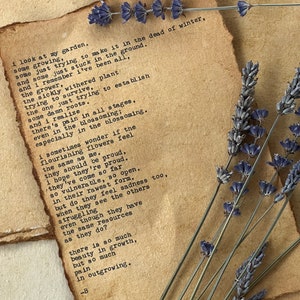 i look at my garden,
some growing,
some just trying to make it in the dead of winter,
some just stuck in the ground.
and i remember i've been all;
the grower,
the withered plant
the sickly survive,
trying to
the one just trying to establish
some dead roots.
and i realize
there's pain in all stages,
even in the blossoming.
especially in the blossoming.
i sometimes wonder if the
flourishing flowers feel
the same as me.
they should be proud,
i hope they're proud.
they've come so far
so vulnerable, so open.
in their rawest form,
but do they feel sadness too,
when they see the others
struggling
even though they have
the same resources
as they do?
there is so much
beauty in growth,
but so much
pain
in outgrowing.
-B